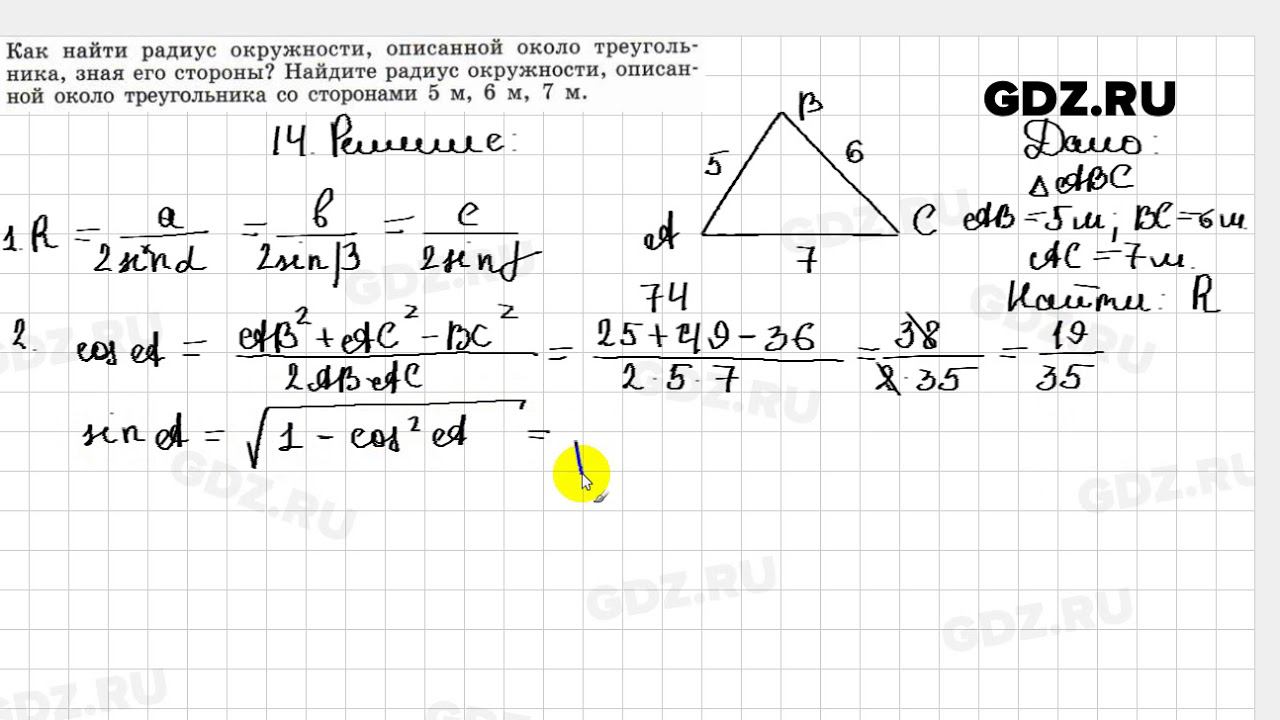 Как найти радиус окружности, описанной около треуголь-
ника, зная его стороны? Найдите радиус окружности, описан-
ной около треугольника со сторонами 5 м, 6 м, 7 м.
GDZ.RU
14. Решение:
B
5
6
A
C
7
Дано:
△ABC
AB = 5м; BC = 6м
AC = 7м.
Найти: R
1. R = a / 2sinα = b / 2sinβ = c / 2sinγ
74
2. cos A = AB² + AC² - BC² / 2AB·AC = 25 + 49 - 36 / 2·5·7 = 38 / 2·35 = 19 / 35
sin A = √1 - cos² A =
GDZ.RU
GDZ.RU
GDZ.RU
GDZ.RU
GDZ.RU
GDZ.RU
GDZ.RU
GDZ.RU
GDZ.RU
GDZ.RU
GDZ.RU